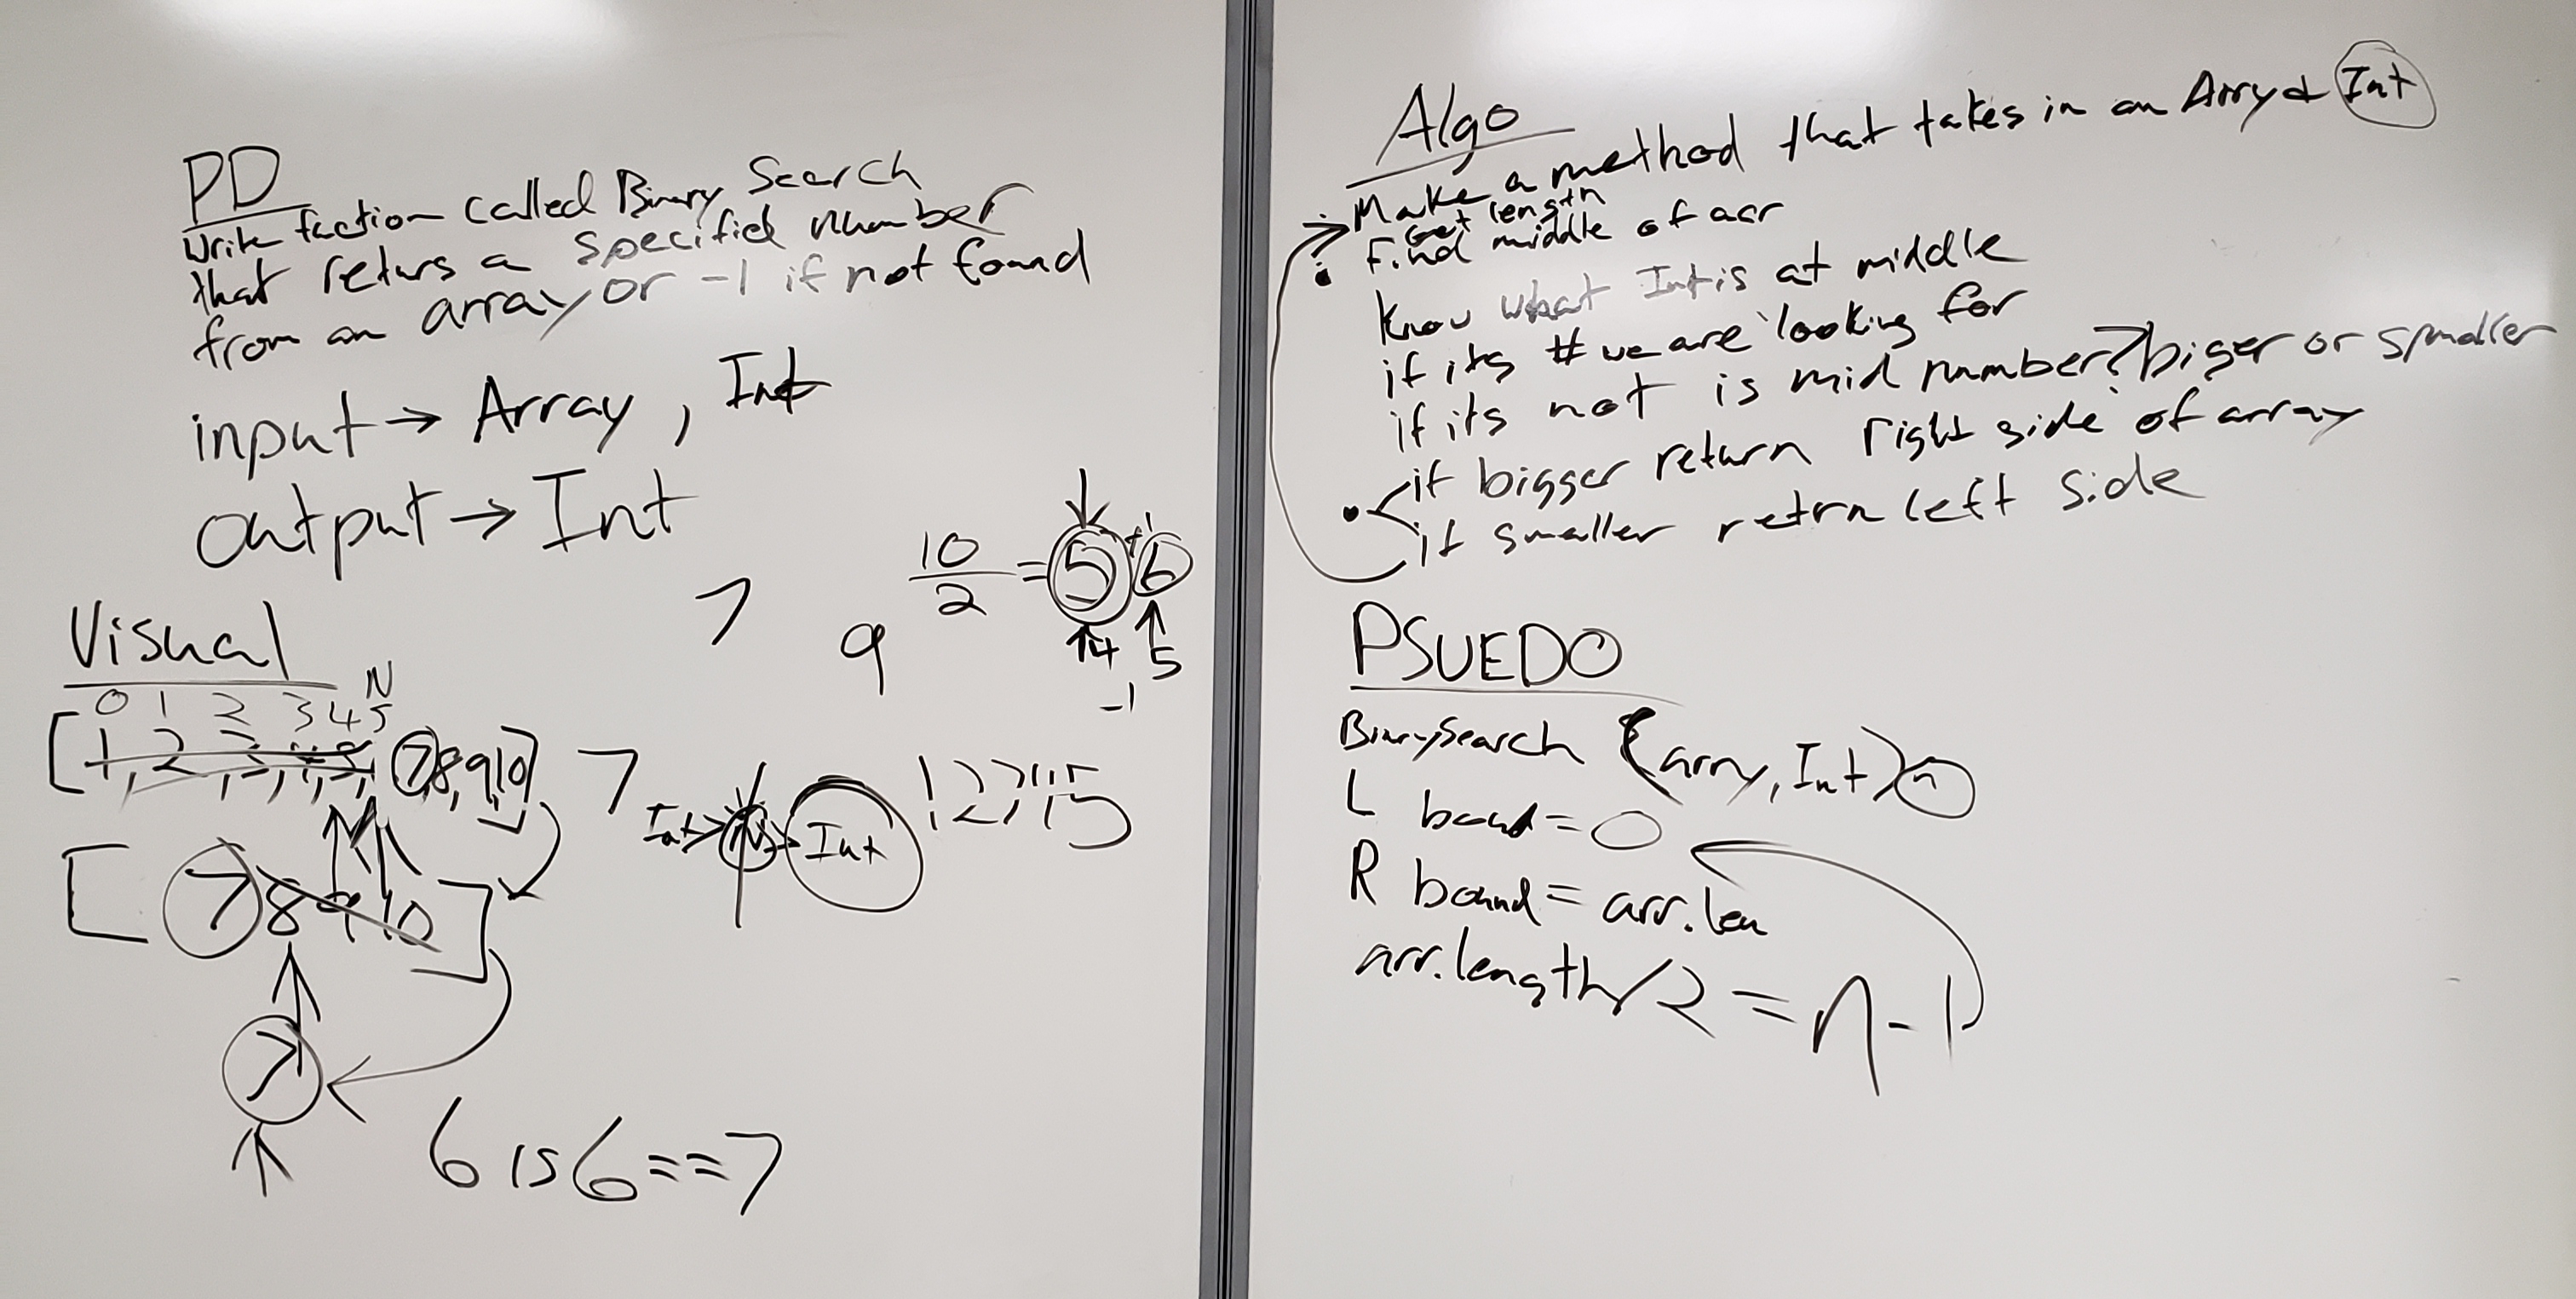 PD
Write fuction called Binary Search
that returs a specified number
from an array or -1 if not found
input → Array, Int
output → Int
10
2
= 5 +1 6
7
9
↑4 ↑5
-1
Visual
N
0 1 2 3 4 5
7, 8, 9, 10]
7
Int →
Int
[7 8 9 10]
7
6 is 6 == 7
Algo
Make a method that takes in an Arry & Int
Get length
Find middle of arr
Know what Int is at middle
if its # we are looking for
if its not is mid number? biger or smaller
if bigger return right side of array
if smaller retrn left side
PSUEDO
BinarySearch (arry, Int) n
L bound = 0
R bound = arr.len
arr.length/2 = n-1